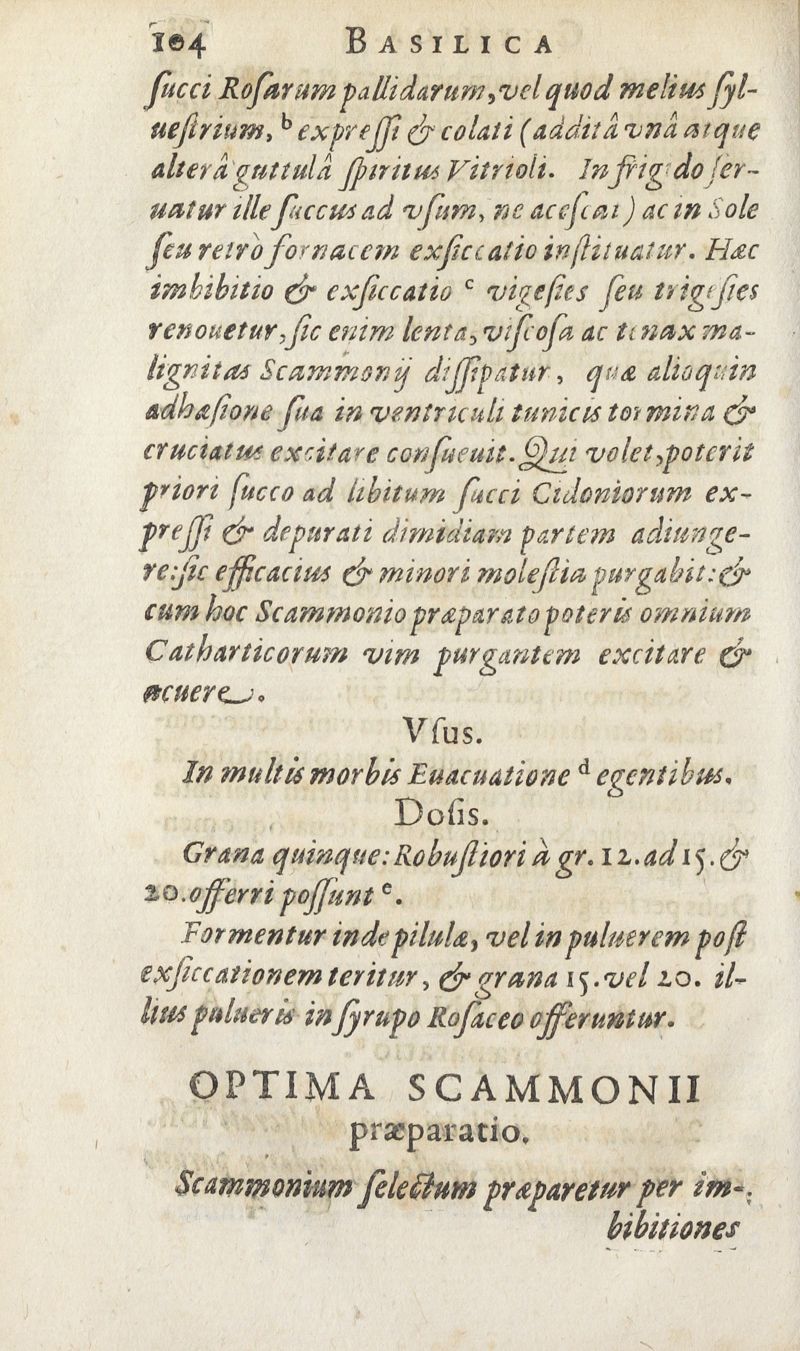 104 BASILICA
ſucci Roſarum pallidarum, vel quod melius ſyl-
ueſtrium, b expreſſi & colati (additâ vnâ atque
alterâ guttulâ ſpiritus Vitrioli. In frigido ſer-
uatur ille ſuccus ad vſum, ne aceſcat) ac in Sole
ſeu retrò fornacem exſiccatio inſtituatur. Hæc
imbibitio & exſiccatio c vigeſies ſeu trigeſies
renouetur, ſic enim lenta, viſcoſa ac tenax ma-
lignitas Scammonij diſſipatur, quæ alioquin
adhæſione ſua in ventriculi tunicis tormina &
cruciatus excitare conſueuit. Qui volet, poterit
priori ſucco ad libitum ſucci Cidoniorum ex-
preſſi & depurati dimidiam partem adiunge-
re: ſic efficacius & minori moleſtia purgabit: &
cum hoc Scammonio præparato poteris omnium
Catharticorum vim purgantem excitare &
acuere.
Vſus.
In multis morbis Euacuatione d egentibus.
Doſis.
Grana quinque: Robuſtiori à gr. 12. ad 15. &
20. offerri poſſunt e.
Formentur inde pilulæ, vel in puluerem poſt
exſiccationem teritur, & grana 15. vel 20. il-
lius pulueris in ſyrupo Roſaceo offeruntur.
OPTIMA SCAMMONII
præparatio.
Scammonium ſelectum præparetur per im-
bibitiones